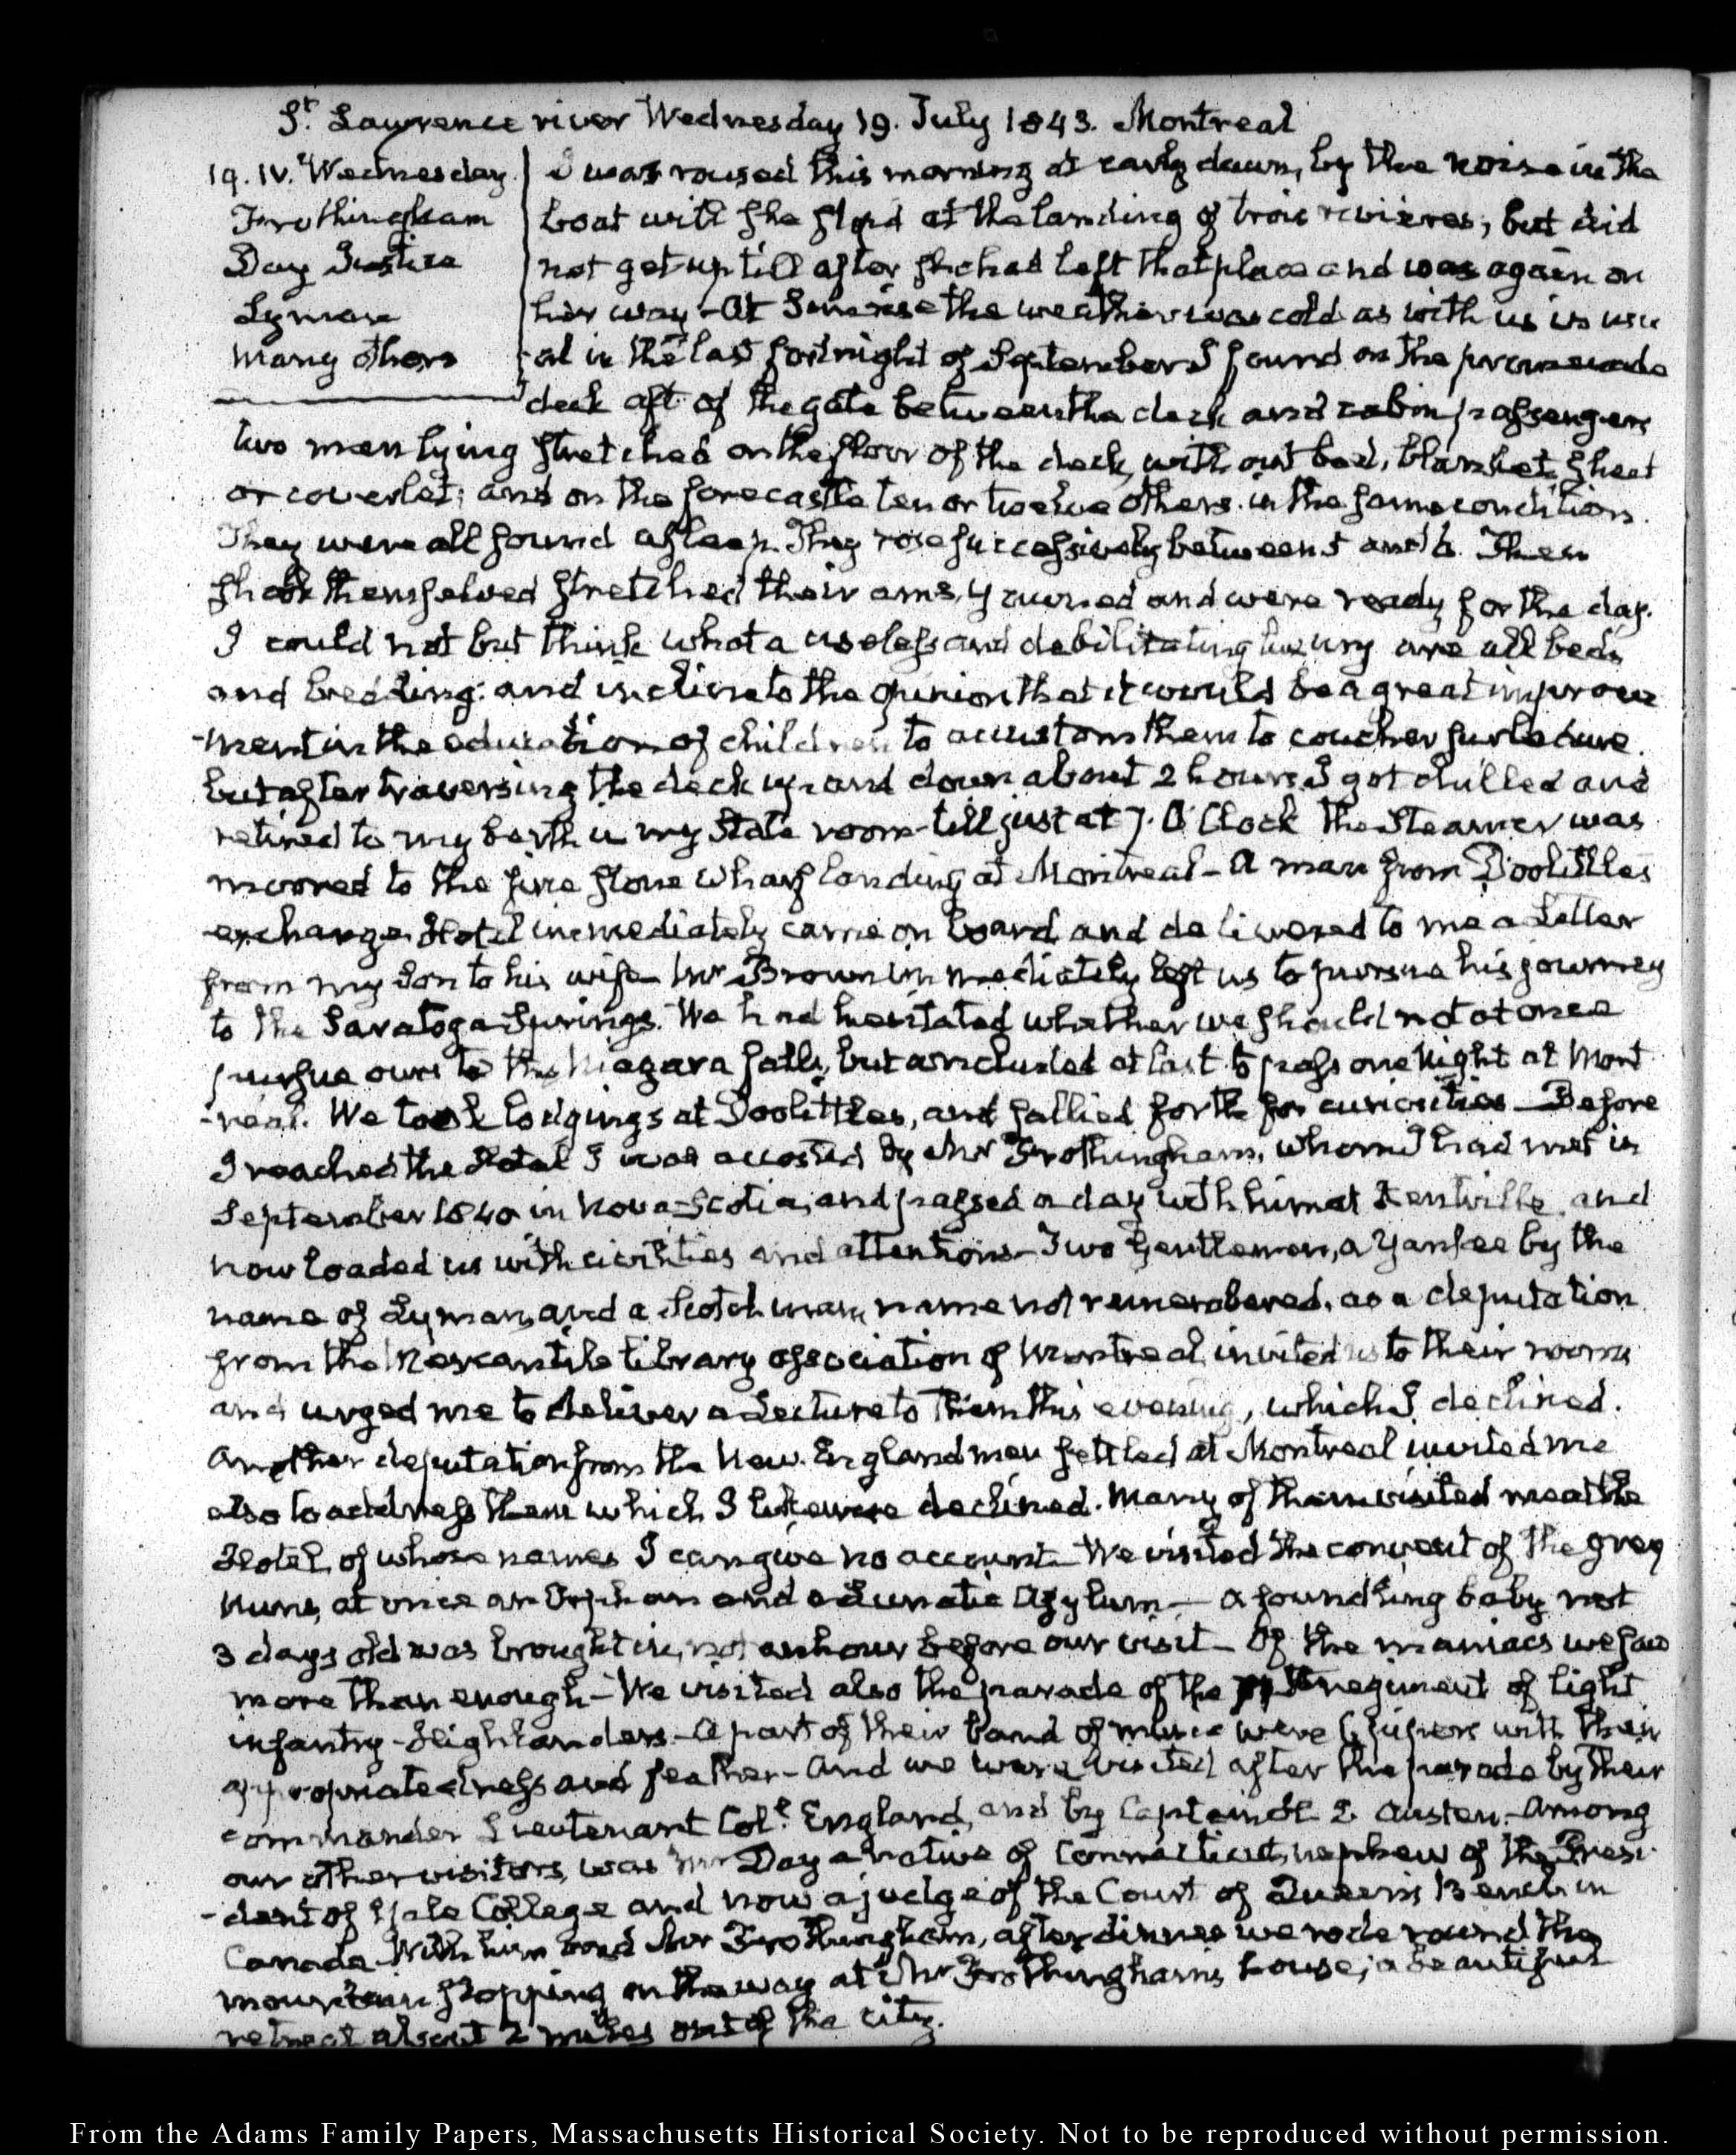 St. Lawrence river Wednesday 19. July 1843. Montreal
19. IV. Wednesday. I was roused this morning at early dawn, by the noise in the
Frothingham boat while she stopd at the landing of trois rivieres; but did
Day Justice not get up till after she had left that place and was again on
Lyman her way - At Sunrise the weather was cold as with us is usu
Many others -al in the last fortnight of September I found on the promenade
deck aft of the gate between the deck and cabin passengers
two men lying stretched on the floor of the deck, without bed, blanket, sheet
or coverlet; and on the forecastle ten or twelve others in the same condition.
They were all sound asleep. They rose successively between 5 and 6. Then
shook themselves stretched their arms, yawned and were ready for the day.
I could not but think what a useless and debilitating luxury are all beds
and bedding: and incline to the opinion that it would be a great improve
-ment in the education of children to accustom them to coucher sur la dure.
but after traversing the deck up and down about 2 hours, I got chilled and
retired to my berth in my State room till just at 7. O'Clock the Steamer was
moored to the fine stone wharf landing at Montreal - A man from Doolittles
exchange Hotel immediately came on board and delivered to me a Letter
from my Son to his wife Mr Brown immediately left us to pursue his journey
to the Saratoga Springs. We had hesitated whether we should not at once
pursue ours to the Niagara falls, but concluded at last to pass one Night at Mont
-real. We took lodgings at Doolittles, and sallied forth for curiosities - Before
I reached the Hotel I was accosted by Mr Frothingham, whom I had met in
September 1840 in Nova-Scotia, and passed a day with him at Kentville, and
now loaded us with civilities and attentions - Two Gentlemen, a Yankee by the
name of Lyman, and a Scotchman, name not remembered, as a deputation
from the Mercantile library association of Montreal, invited us to their rooms
and urged me to deliver a Lecture to them this evening, which I declined.
Another deputation from the New-England men settled at Montreal invited me
also to address them which I likewise declined. Many of them visited me at the
Hotel, of whose names I can give no account - We visited the convent of the grey
Nuns, at once an Orphan and a Lunatic Asylum - a foundling baby not
3 days old was brought in, not an hour before our visit - Of the maniacs we saw
more than enough - We visited also the parade of the regiment of light
infantry - Highlanders - A part of their band of music were bagpipers with their
appropriate dress and feather - And we were visited after the parade by their
commander Lieutenant Coll. England, and by Captain Austen. Among
our other visitors, was Mr Day a native of Connecticut, nephew of the Presi
-dent of Yale College and now a judge of the Court of Queen's Bench in
Canada. With him and Mr Frothingham, after dinner we rode round the
mountain stopping on the way at Mr Frothingham's house; a beautiful
retreat about 2 miles out of the city.
From the Adams Family Papers, Massachusetts Historical Society. Not to be reproduced without permission.